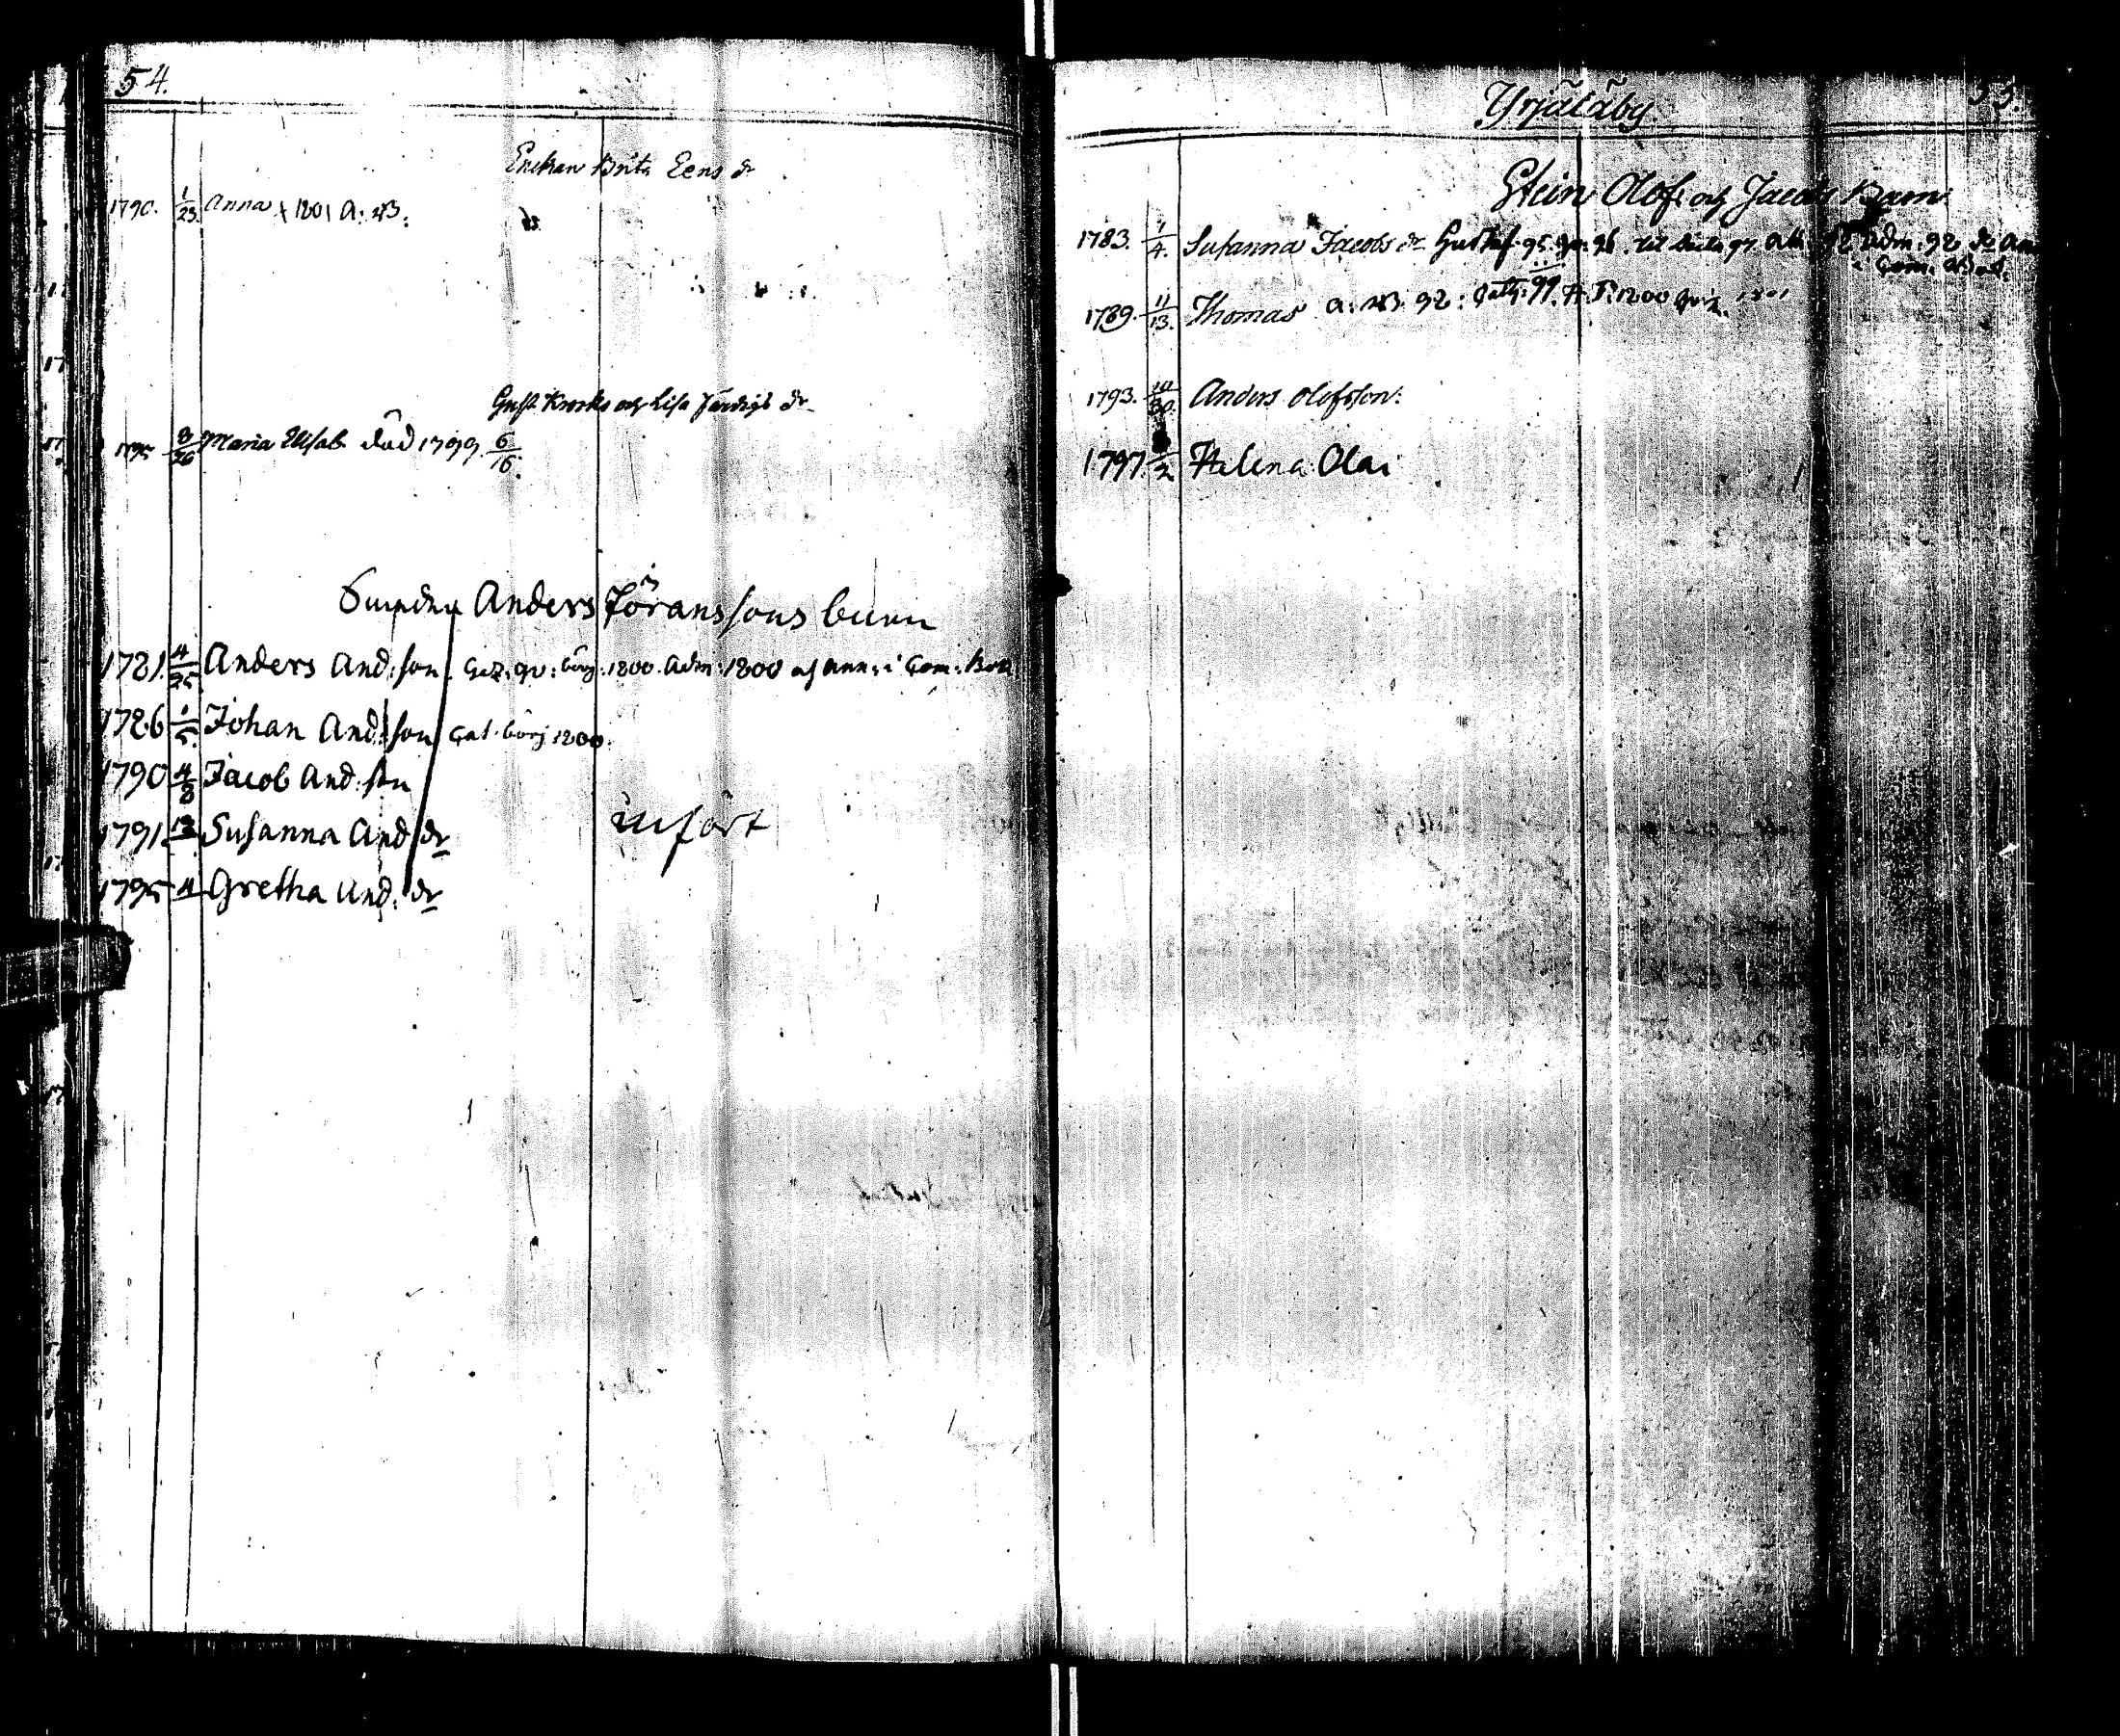 54.
Enckan Brita Eens dr
1790. 1/23. Anna + 1801 A: B:
Gust. Krooks och Lisa dr
1795 8/26 Maria Elisab. död 1799 6/16.
Anders Jöranssons barn
1781. 4/25 Anders And:son. börj: 1800. Adm: 1800 och ann: i Com: Bok
1786 1/5. Johan And:son Cat. börj 1800.
1790 4/8 Jacob And:son
1791 12 Susanna And dr
infört
1795 4 Gretha And: dr
Yrjäläby
55.
Stein Olofs och Jacobs Barn
1783. 1/4. Susanna Jacobs dr 95. 96. 97. 92 Adm: 92
i Com: Bok.
1789. 11/13. Thomas A: B. 92: 99. 1800 1801
1793. 10/30. Anders Olofsson:
1797. /2 Helena Olai